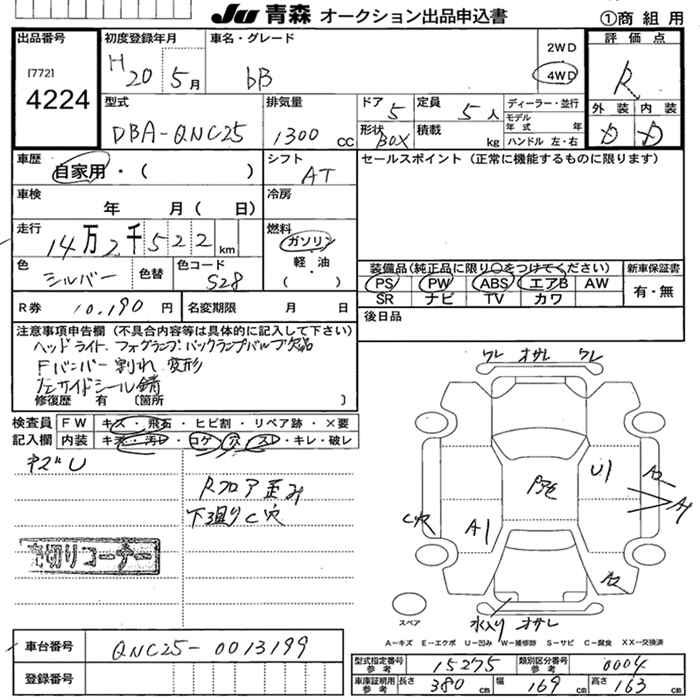 JU 青森 オークション出品申込書
①商組用
出品番号
[772]
4224
初度登録年月
H20 5月
車名・グレード
bB
2WD
4WD
評価点
R
外装 内装
D D
型式
DBA-QNC25
排気量
1300 CC
ドア 5
定員 5人
形状 BOX
積載 kg
ディーラー・並行
モデル年式 年
ハンドル 左・右
車歴
自家用・( )
シフト
AT
セールスポイント（正常に機能するものに限ります）
車検
年 月( 日)
冷房
走行
14万2千522km
燃料
ガソリン
軽・油
( )
色
シルバー
色替
色コード
S28
装備品(純正品に限り○をつけてください)
新車保証書
PS PW ABS エアB AW
SR ナビ TV カワ
有・無
R券 10,190円
名変期限 月 日
後日品
注意事項申告欄（不具合内容等は具体的に記入して下さい）
ヘッドライト、フォグランプ、バックランプバルブ欠品
Fバンパー割れ 変形
左サイドシール錆
修復歴 有 〔箇所 〕
検査員記入欄
FW キズ・飛石・ヒビ割・リペア跡・×要
内装 キズ・汚レ・コゲ・穴・スレ・キレ・破レ
ネズU
Rフロア歪み
下廻りC穴
売切りコーナー
ワレ オサレ ワレ
U1
A1
C穴
水入り オサレ
スペア
A－キズ E－エクボ U－凹み W－補修跡 S－サビ C－腐食 XX－交換済
車台番号
QNC25-0013199
登録番号
型式指定番号 参考 15275
類別区分番号 参考 0004
車庫証明用 参考 長さ 380cm 幅 169cm 高さ 163cm